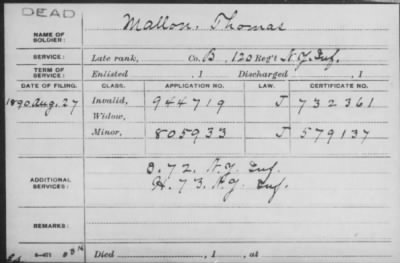 DEAD
NAME OF SOLDIER: Mallon, Thomas
SERVICE: Late rank, Co. B, 120 Reg't N.Y. Inf.
TERM OF SERVICE: Enlisted , 1 Discharged , 1
DATE OF FILING. CLASS. APPLICATION NO. LAW. CERTIFICATE NO.
1890 Aug. 27 Invalid, 944719 J 732361
Widow,
Minor, 805933 J 579137
ADDITIONAL SERVICES: D. 72. N.Y. Inf.
H. 73. N.Y. Inf.
REMARKS:
Died , 1 , at